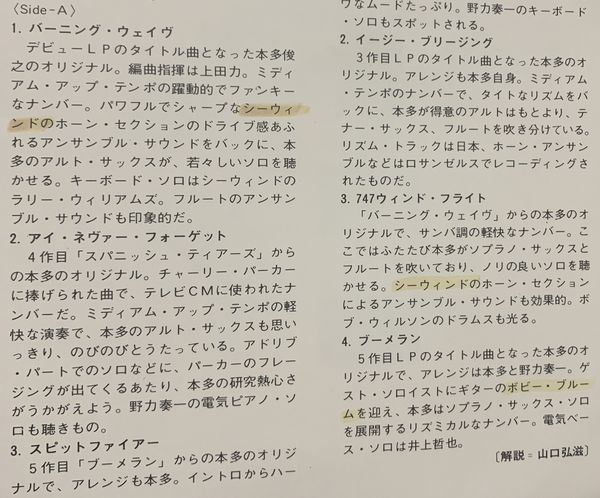 〈Side-A〉
1. バーニング・ウェイヴ
デビューＬＰのタイトル曲となった本多俊
之のオリジナル。編曲指揮は上田力。ミディ
アム・アップ・テンポの躍動的でファンキー
なナンバー。パワフルでシャープなシーウィ
ンドのホーン・セクションのドライブ感あふ
れるアンサンブル・サウンドをバックに、本
多のアルト・サックスが、若々しいソロを聴
かせる。キーボード・ソロはシーウィンドの
ラリー・ウィリアムズ。フルートのアンサン
ブル・サウンドも印象的だ。
2. アイ・ネヴァー・フォーゲット
４作目「スパニッシュ・ティアーズ」から
の本多のオリジナル。チャーリー・パーカー
に捧げられた曲で、テレビＣＭに使われたナ
ンバーだ。ミディアム・アップ・テンポの軽
快な演奏で、本多のアルト・サックスも思い
っきり、のびのびとうたっている。アドリブ
・パートでのソロなどに、パーカーのフレー
ジングが出てくるあたり、本多の研究熱心さ
がうかがえよう。野力奏一の電気ピアノ・ソ
ロも聴きもの。
3. スピットファイアー
５作目「ブーメラン」からの本多のオリジ
ナルで、アレンジも本多。イントロからハー
ヴなムードたっぷり。野力奏一のキーボード
・ソロもスポットされる。
2. イージー・ブリージング
３作目ＬＰのタイトル曲となった本多のオ
リジナル。アレンジも本多自身。ミディアム
・テンポのナンバーで、タイトなリズムをバ
ックに、本多が得意のアルトはもとより、テ
ナー・サックス、フルートを吹き分けている。
リズム・トラックは日本、ホーン・アンサン
ブルなどはロサンゼルスでレコーディングさ
れたものだ。
3. 747ウィンド・フライト
「バーニング・ウェイヴ」からの本多のオ
リジナルで、サンバ調の軽快なナンバー。こ
こではふたたび本多がソプラノ・サックスと
フルートを吹いており、ノリの良いソロを聴
かせる。シーウィンドのホーン・セクション
によるアンサンブル・サウンドも効果的。ボ
ブ・ウィルソンのドラムスも光る。
4. ブーメラン
５作目ＬＰのタイトル曲となった本多のオ
リジナルで、アレンジは本多と野力奏一。ゲ
スト・ソロイストにギターのボビー・ブルー
ムを迎え、本多はソプラノ・サックス・ソロ
を展開するリズミカルなナンバー。電気ベー
ス・ソロは井上哲也。
〔解説＝山口弘滋〕